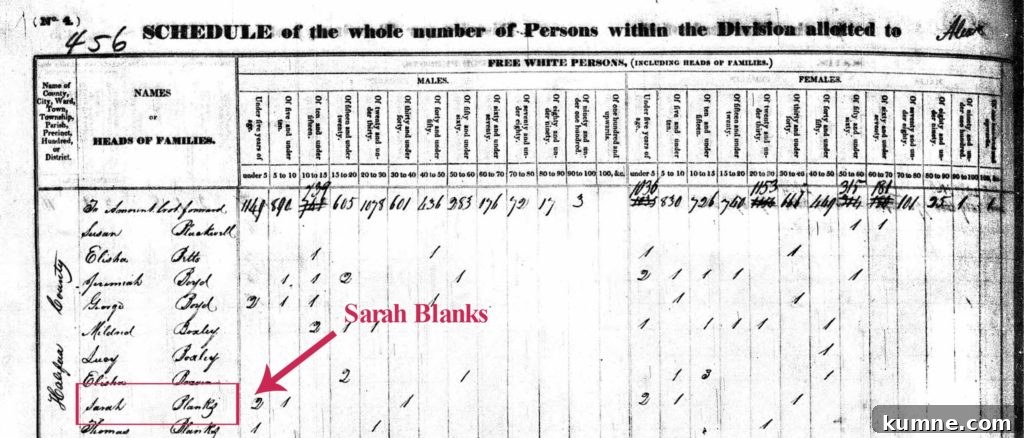 (No. 4.)
456 SCHEDULE of the whole number of Persons within the Division allotted to
FREE WHITE PERSONS, (INCLUDING HEADS OF FAMILIES.)
MALES. FEMALES.
Name of County, City, Ward, Town, Township, Parish, Precinct, Hundred, or District.
NAMES
OF
HEADS OF FAMILIES.
Under five years of age.
Of five and under ten.
Of ten and under fifteen.
Of fifteen and under twenty.
Of twenty and under thirty.
Of thirty and under forty.
Of forty and under fifty.
Of fifty and under sixty.
Of sixty and under seventy.
Of seventy and under eighty.
Of eighty and under ninety.
Of ninety and under one hundred.
Of one hundred and upwards.
Under five years of age.
Of five and under ten.
Of ten and under fifteen.
Of fifteen and under twenty.
Of twenty and under thirty.
Of thirty and under forty.
Of forty and under fifty.
Of fifty and under sixty.
Of sixty and under seventy.
Of seventy and under eighty.
Of eighty and under ninety.
Of ninety and under one hundred.
under 5 5 to 10 10 to 15 15 to 20 20 to 30 30 to 40 40 to 50 50 to 60 60 to 70 70 to 80 80 to 90 90 to 100 100, &c. under 5 5 to 10 10 to 15 15 to 20 20 to 30 30 to 40 40 to 50 50 to 60 60 to 70 70 to 80 80 to 90 90 to 100
739 1036 1153 315 181
To Amount brot forward 1149 890 605 1078 601 436 283 176 72 17 3 830 726 449 101 25 1
Halifax County
Susan 1 1
Elisha Pitts 1 1 1 1
Jeremiah Boyd 1 1 2 1 2 1 1 1 1
George Boyd 2 1 1 1 1 1
Mildred Boxley 2 1 1 1 1 1 1 1
Lucy Boxley 1
Elisha 2 1 1 3 1
Sarah Blanks 2 1 1 2 1 1
Thomas Blanks 1 1
Sarah Blanks
kumne.com